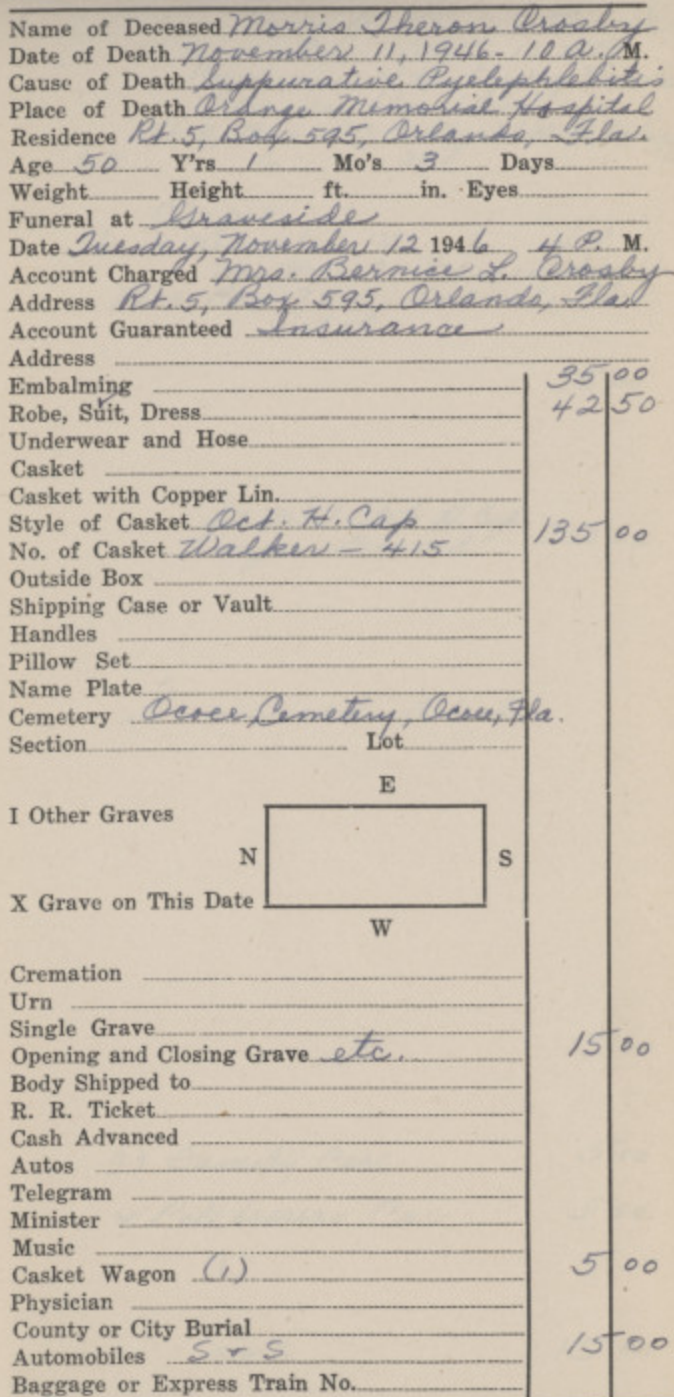 Name of Deceased Morris Theron Crosby
Date of Death November 11, 1946 - 10 a. M.
Cause of Death Suppurative Pyelephlebitis
Place of Death Orange Memorial Hospital
Residence Rt. 5, Box 595, Orlando, Fla.
Age 50 Y'rs 1 Mo's 3 Days
Weight Height ft. in. Eyes
Funeral at Graveside
Date Tuesday, November 12 1946 4 P. M.
Account Charged Mrs. Bernice L. Crosby
Address Rt. 5, Box 595, Orlando, Fla.
Account Guaranteed Insurance
Address
Embalming 35 00
Robe, Suit, Dress 42 50
Underwear and Hose
Casket
Casket with Copper Lin.
Style of Casket Oct. H. Cap
No. of Casket Walker - 415 135 00
Outside Box
Shipping Case or Vault
Handles
Pillow Set
Name Plate
Cemetery Ocoee Cemetery, Ocoee, Fla.
Section Lot
E
I Other Graves
N S
X Grave on This Date
W
Cremation
Urn
Single Grave
Opening and Closing Grave etc. 15 00
Body Shipped to
R. R. Ticket
Cash Advanced
Autos
Telegram
Minister
Music
Casket Wagon (1) 5 00
Physician
County or City Burial
Automobiles S + S 15 00
Baggage or Express Train No.